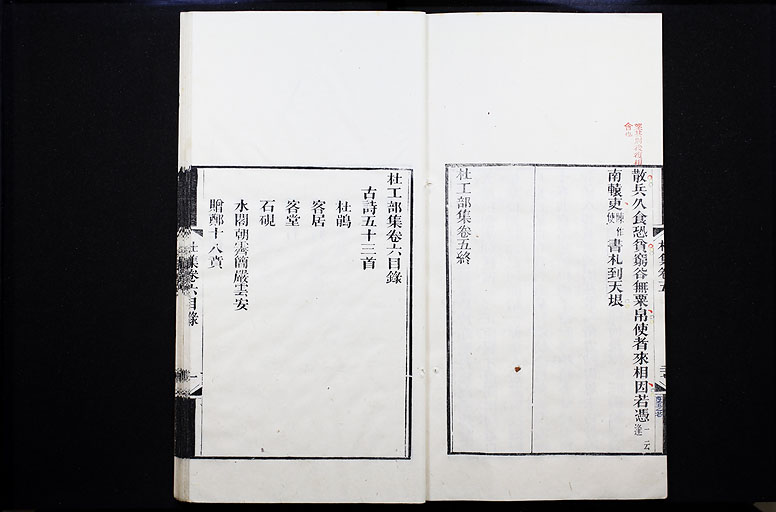 散兵久食恐貧窮谷無粟帛使者來相因若憑一云逢
南轅吏陳作使書札到天垠
杜工部集卷五終
杜工部集卷六目錄
古詩五十三首
杜鵑
客居
客堂
石硯
水閣朝霽簡嚴雲安
贈鄭十八賁
杜集卷六目錄
一